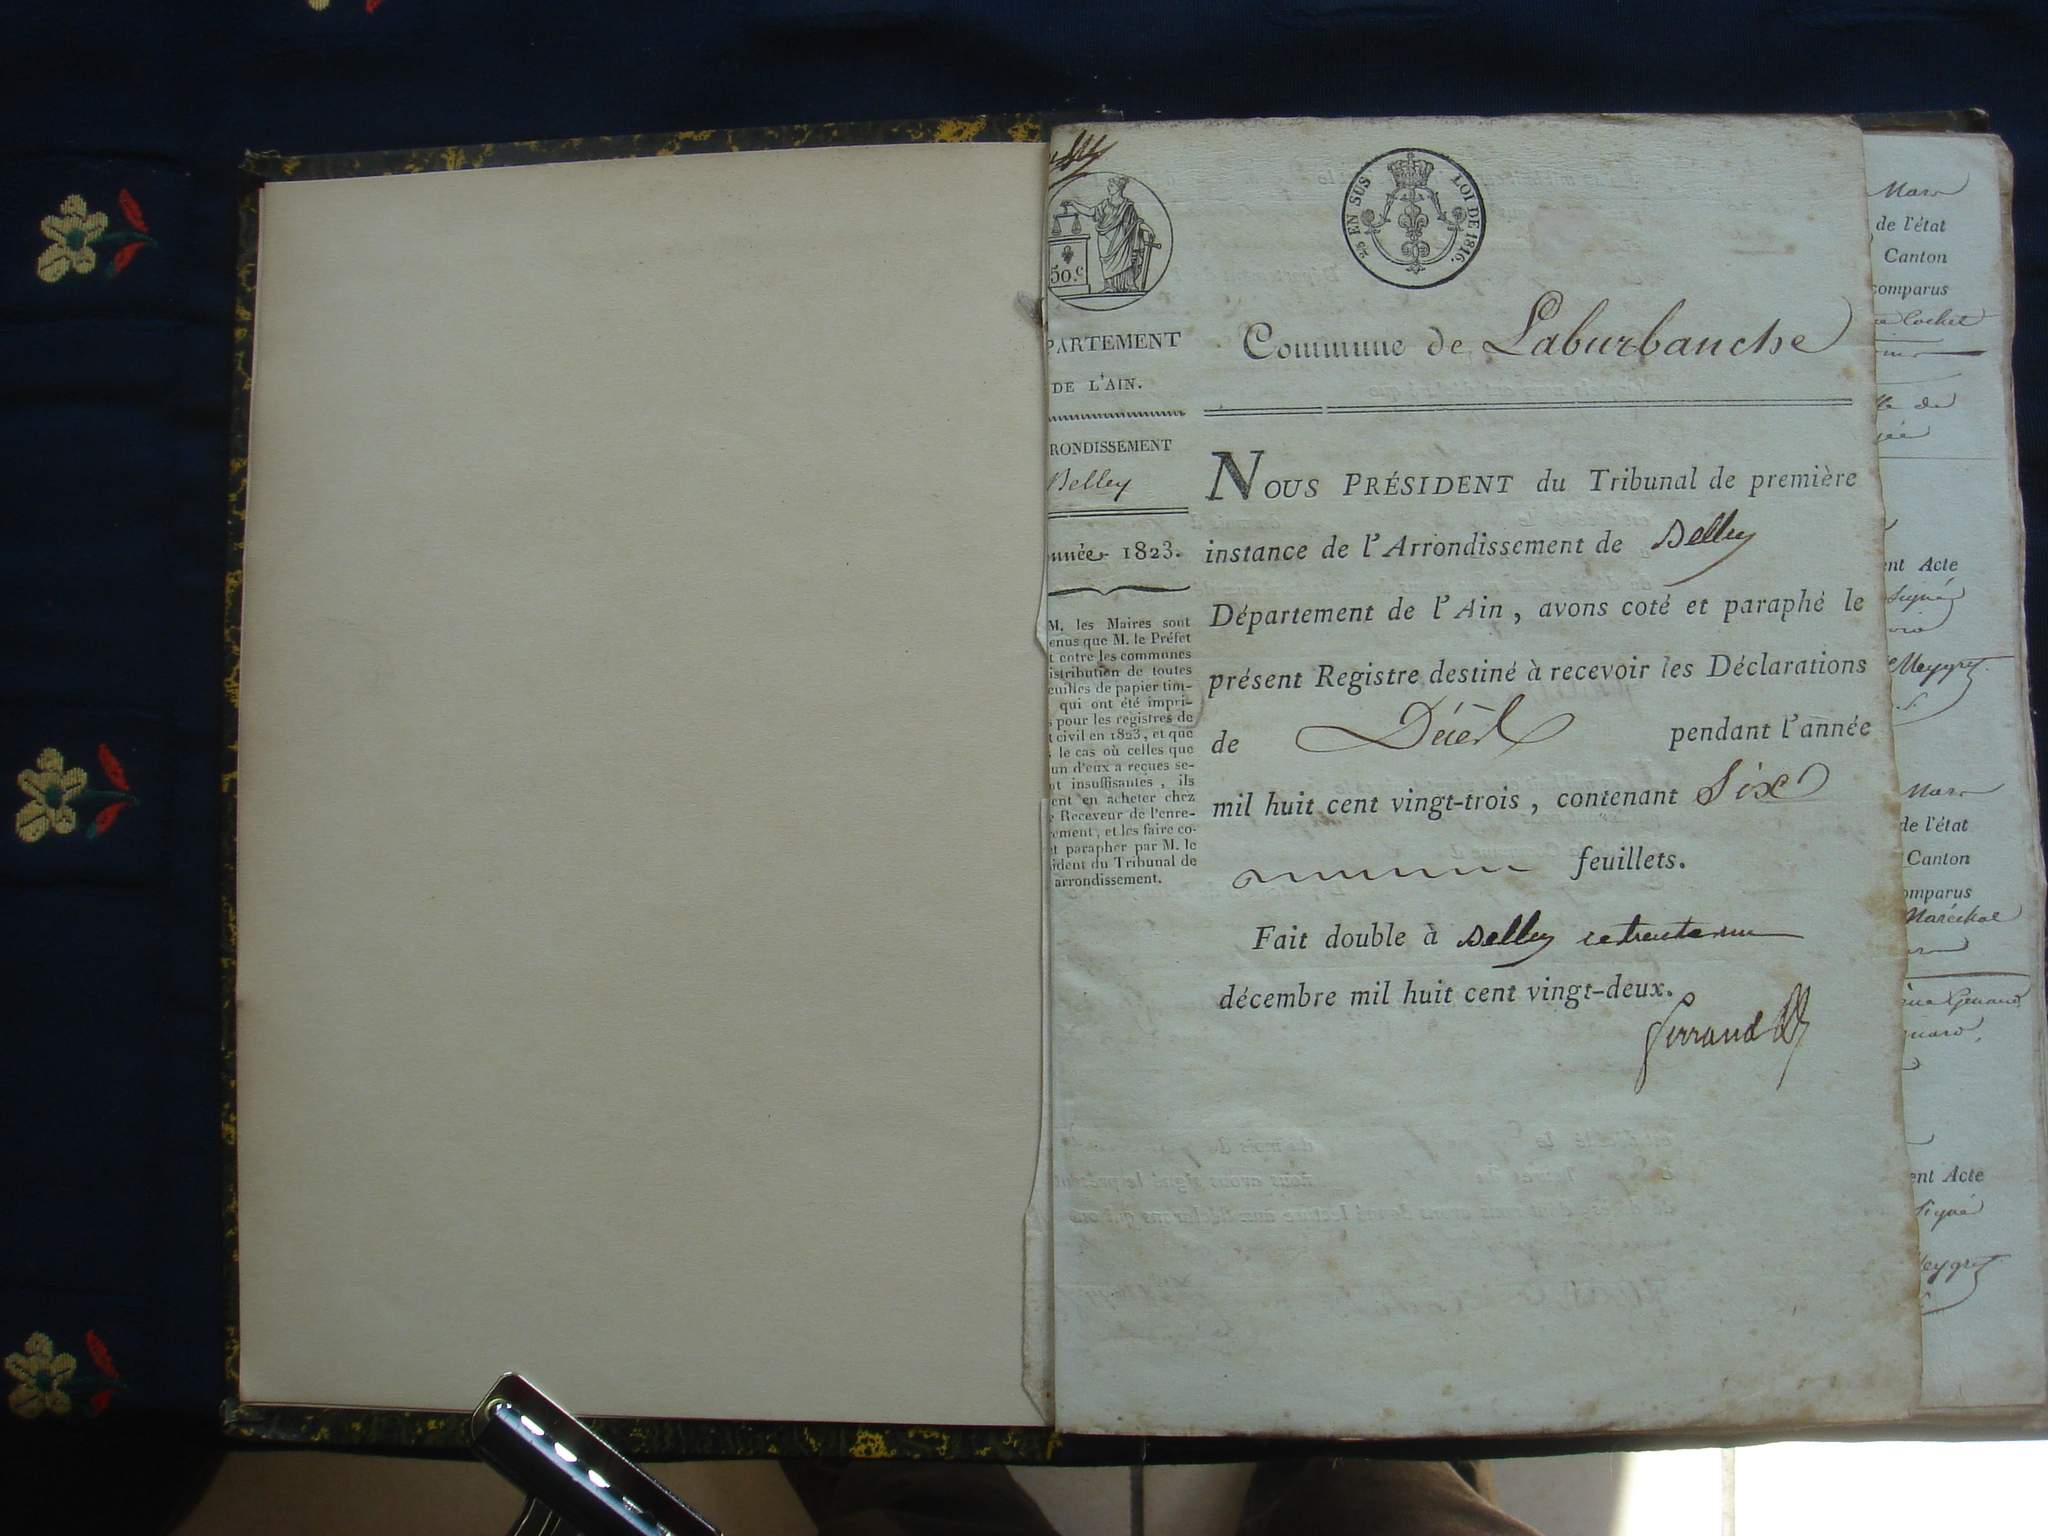 50.c
2/5 EN SUS LOI DE 1816.
PARTEMENT
DE L'AIN.
RONDISSEMENT
Belley
nnée 1823.
M. les Maires sont
enus que M. le Préfet
t entre les communes
istribution de toutes
euilles de papier tim-
qui ont été impri-
s pour les registres de
t civil en 1823, et que
le cas où celles que
un d'eux a reçues se-
nt insuffisantes, ils
ent en acheter chez
e Receveur de l'enre-
ement, et les faire co-
et parapher par M. le
ident du Tribunal de
arrondissement.
Commune de Laburbanche
NOUS PRÉSIDENT du Tribunal de première
instance de l'Arrondissement de Belley
Département de l'Ain, avons coté et paraphé le
présent Registre destiné à recevoir les Déclarations
de Décès pendant l'année
mil huit cent vingt-trois, contenant Six
feuillets.
Fait double à Belley le trente un
décembre mil huit cent vingt-deux.
Mars
de l'état
Canton
comparus
Cochet
lle de
ent Acte
Signé
Meygret
Mars
de l'état
Canton
omparus
Maréchal
ent Acte
Signé
eygret